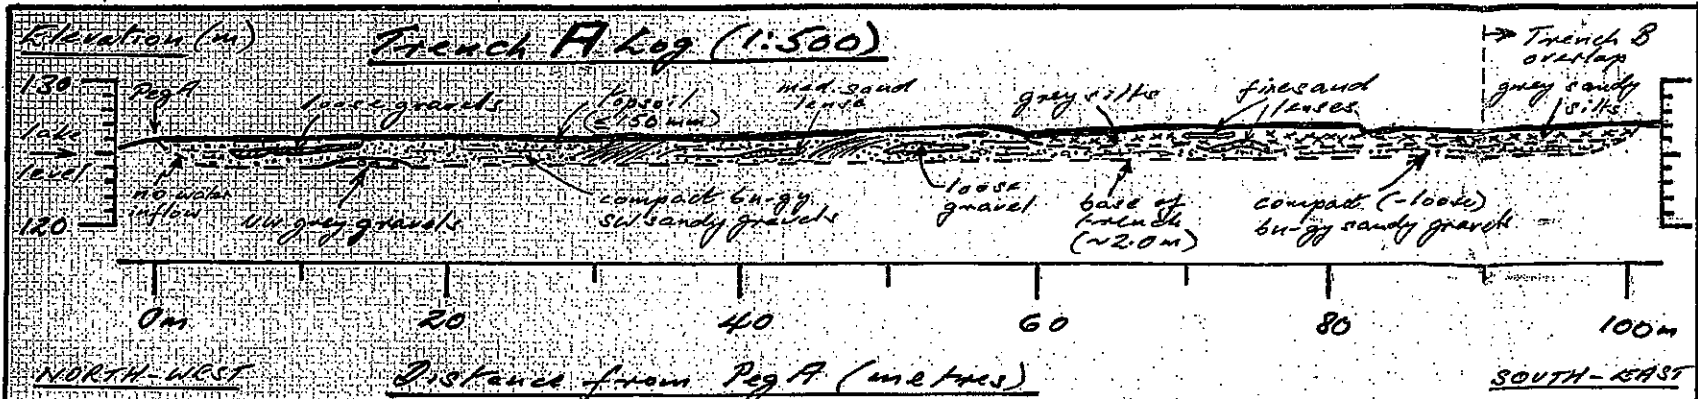 Elevation (m)
Trench A Log (1:500)
Trench B
overlap
130
Peg A
loose gravels
topsoil
(≤150 mm)
med. sand
lense
grey silts
fine sand
lenses
grey sandy
silts
lake
level
no water
inflow
UW grey gravels
compact bn-gy
SW sandy gravels
loose
gravel
base of
trench
(~2.0m)
compact (-loose)
bn-gy sandy gravels
120
0m
20
40
60
80
100m
NORTH-WEST
Distance from Peg A (metres)
SOUTH-EAST